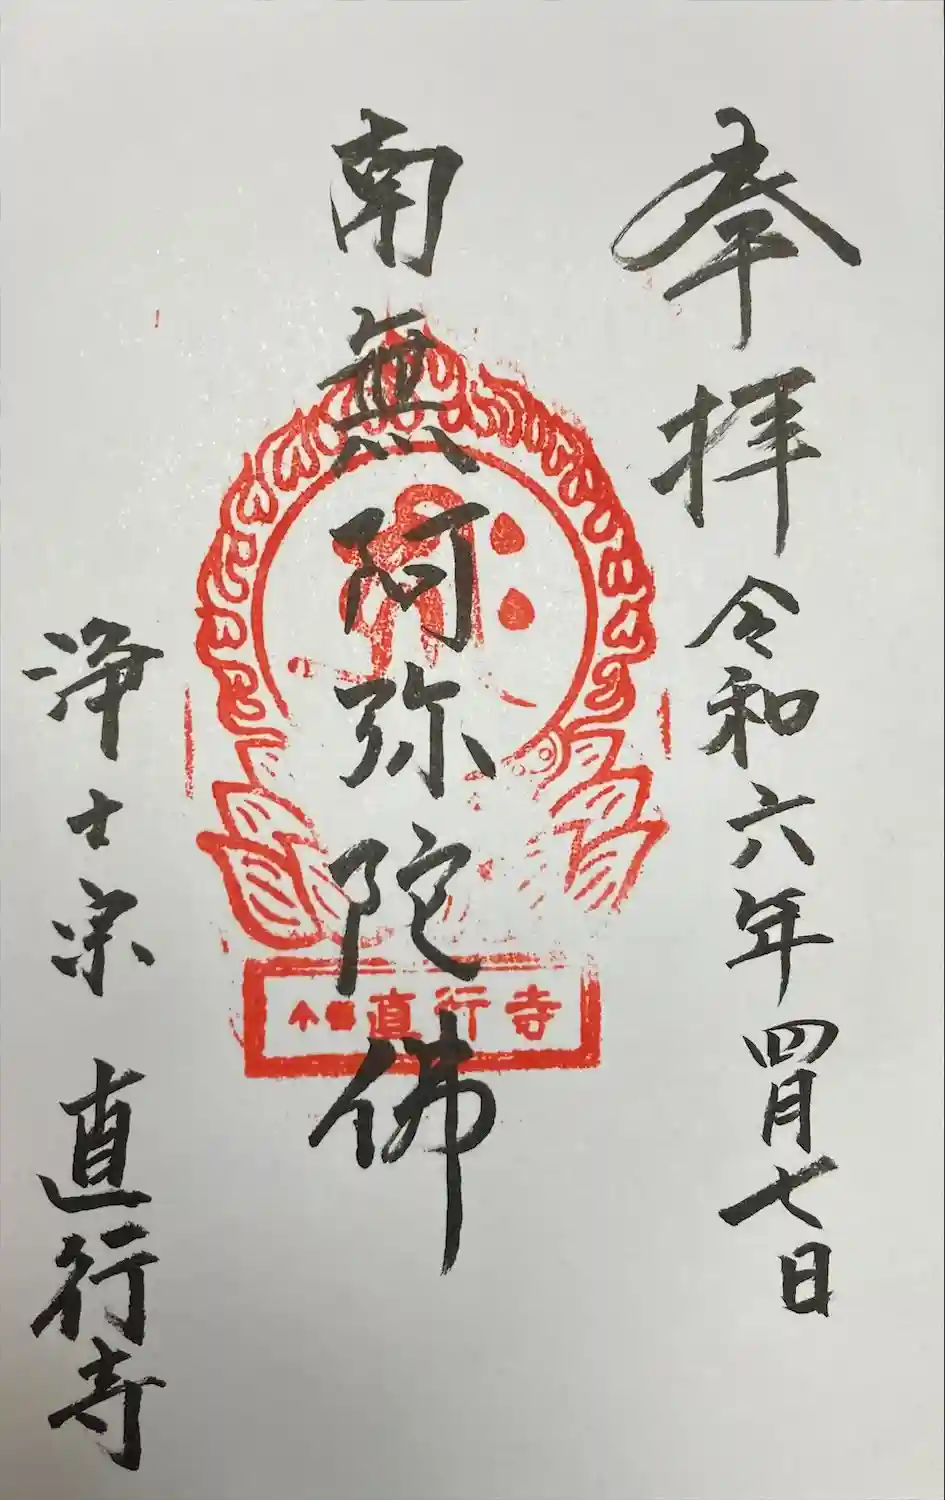 奉拝 令和六年四月七日
南無阿弥陀佛
直行寺
浄土宗 直行寺